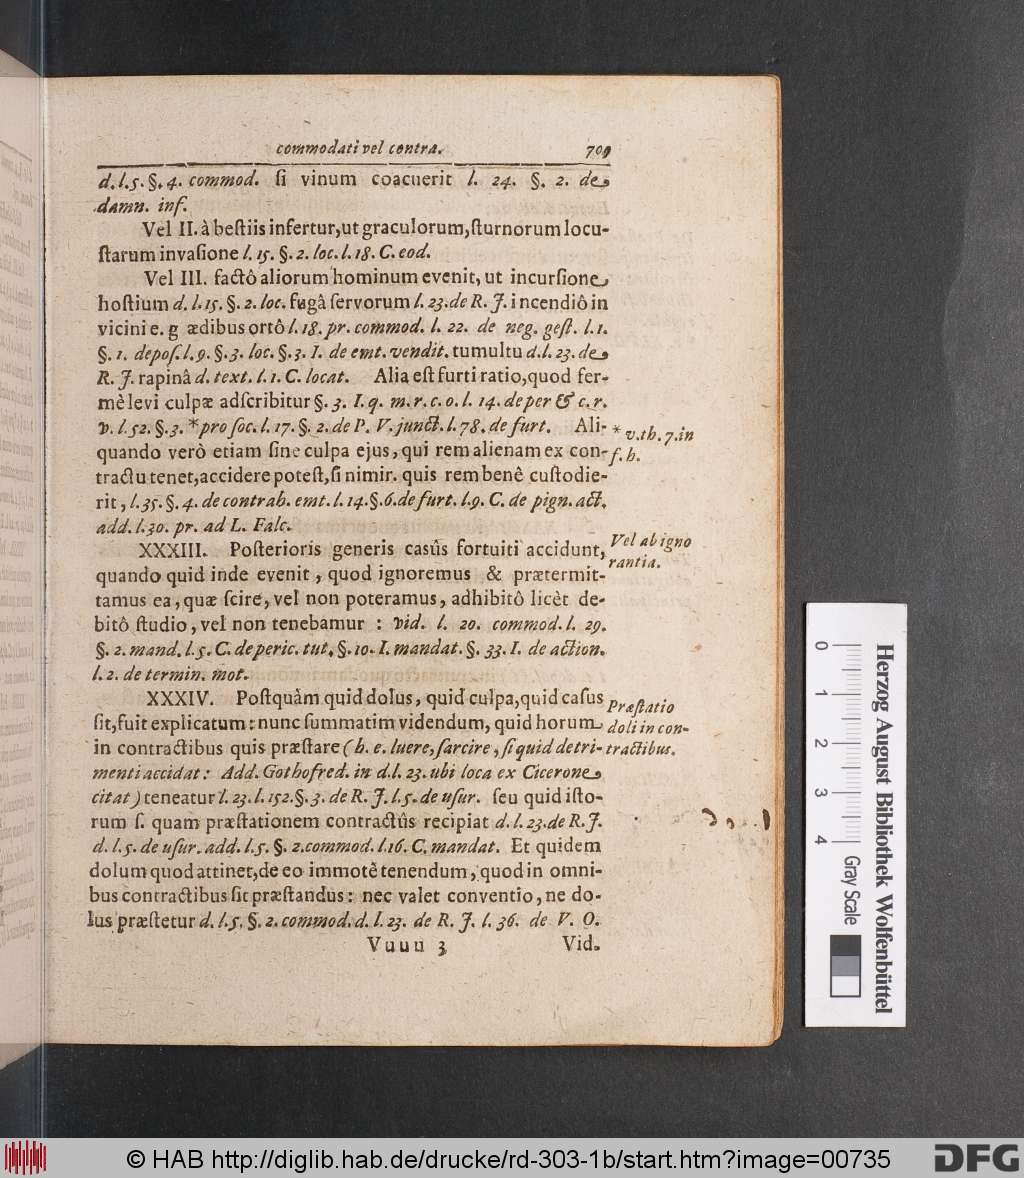 commodati vel contra. 709
d. l. 5. §. 4. commod. ſi vinum coacuerit l. 24. §. 2. de
damn. inf.
Vel II. à beſtiis infertur, ut graculorum, ſturnorum locu-
ſtarum invaſione l. 15. §. 2. loc. l. 18. C. eod.
Vel III. factô aliorum hominum evenit, ut incurſione
hoſtium d. l. 15. §. 2. loc. fugâ ſervorum l. 23. de R. J. incendiô in
vicini e. g ædibus ortô l. 18. pr. commod. l. 22. de neg. geſt. l. 1.
§. 1. depoſ. l. 9. §. 3. loc. §. 3. I. de emt. vendit. tumultu d. l. 23. de
R. J. rapinâ d. text. l. 1. C. locat. Alia eſt furti ratio, quod fer-
mè levi culpæ adſcribitur §. 3. I. q. m. r. c. o. l. 14. de per & c. r.
v. l. 52. §. 3. * pro ſoc. l. 17. §. 2. de P. V. junct. l. 78. de furt. Ali-
* v. th. 7. in
quando verò etiam ſine culpa ejus, qui rem alienam ex con-
f. h.
tractu tenet, accidere poteſt, ſi nimir. quis rem benê cuſtodie-
rit, l. 35. §. 4. de contrah. emt. l. 14. §. 6. de furt. l. 9. C. de pign. act.
add. l. 30. pr. ad L. Falc.
XXXIII. Poſterioris generis caſûs fortuiti accidunt,
Vel ab igno
quando quid inde evenit, quod ignoremus & prætermit-
rantia.
tamus ea, quæ ſcire, vel non poteramus, adhibitô licèt de-
bitô ſtudio, vel non tenebamur : vid. l. 20. commod. l. 29.
§. 2. mand. l. 5. C. de peric. tut. §. 10. I. mandat. §. 33. I. de action.
l. 2. de termin. mot.
XXXIV. Poſtquàm quid dolus, quid culpa, quid caſus
Præſtatio
ſit, fuit explicatum: nunc ſummatim videndum, quid horum
doli in con-
in contractibus quis præſtare (h. e. luere, ſarcire, ſi quid detri-
tractibus.
menti accidat: Add. Gothofred. in d. l. 23. ubi loca ex Cicerone
citat) teneatur l. 23. l. 152. §. 3. de R. J. l. 5. de uſur. ſeu quid iſto-
rum ſ. quam præſtationem contractûs recipiat d. l. 23. de R. J.
d. l. 5. de uſur. add. l. 5. §. 2. commod. l. 16. C. mandat. Et quidem
dolum quod attinet, de eo immotè tenendum, quod in omni-
bus contractibus ſit præſtandus: nec valet conventio, ne do-
lus præſtetur d. l. 5. §. 2. commod. d. l. 23. de R. J. l. 36. de V. O.
Vuuu 3 Vid.
0 1 2 3 4
Gray Scale
Herzog August Bibliothek Wolfenbüttel
© HAB http://diglib.hab.de/drucke/rd-303-1b/start.htm?image=00735
DFG